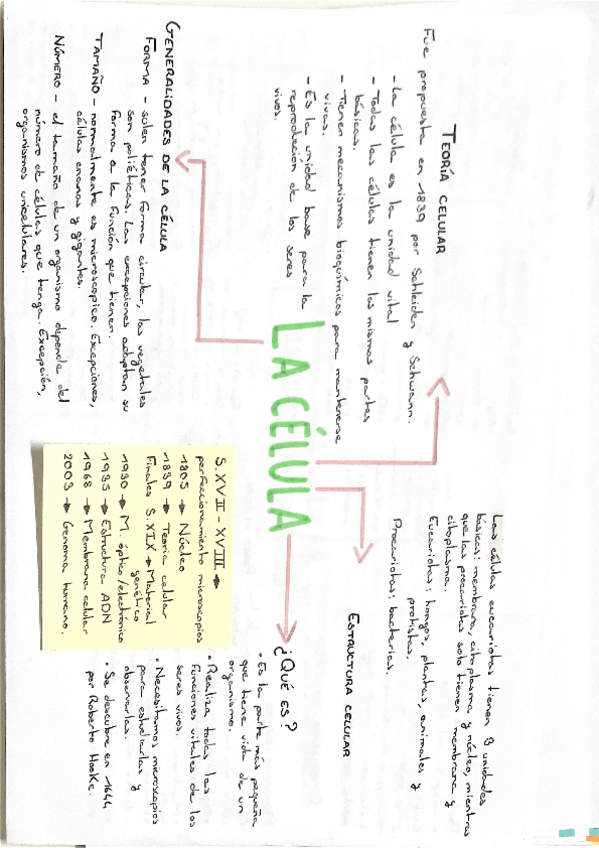 TEORÍA CELULAR
Fue propuesta en 1839 por Schleiden y Schwann.
- La célula es la unidad vital
- Todas las células tienen las mismas partes
básicas.
- Tienen mecanismos bioquímicos para mantenerse
vivas.
- Es la unidad base para la
reproducción de los seres
vivos.
Las células eucariotas tienen 3 unidades
básicas: membrana, citoplasma y núcleo, mientras
que las procariotas solo tienen membrana y
citoplasma.
Eucariotas: hongos, plantas, animales y
protistas.
Procariotas: bacterias.
ESTRUCTURA CELULAR
LA CÉLULA
GENERALIDADES DE LA CÉLULA
FORMA - suelen tener forma circular, las vegetales
son poliéticas. Las excepciones adaptan su
forma a la función que tienen.
TAMAÑO - normalmente es microscopico. Excepciones,
células enanas y gigantes.
NÚMERO - el tamaño de un organismo depende del
número de células que tenga. Excepción,
organismos unicelulares.
S. XVII - XVIII →
perfeccionamiento microscopios
1805 → Núcleo
1839 → Teoria celular
Finales S. XIX → Material
genético
1930 → M. óptico/electrónico
1935 → Estructura ADN
1968 → Membrana celular
2003 → Genoma humano.
¿QUÉ ES?
• Es la parte más pequeña
que tiene vida de un
organismo.
• Realiza todas las
funciones vitales de los
seres vivos.
• Necesitamos microscopios
para estudiarlas y
observarlas.
• Se descubre en 1644
por Roberto Hooke.